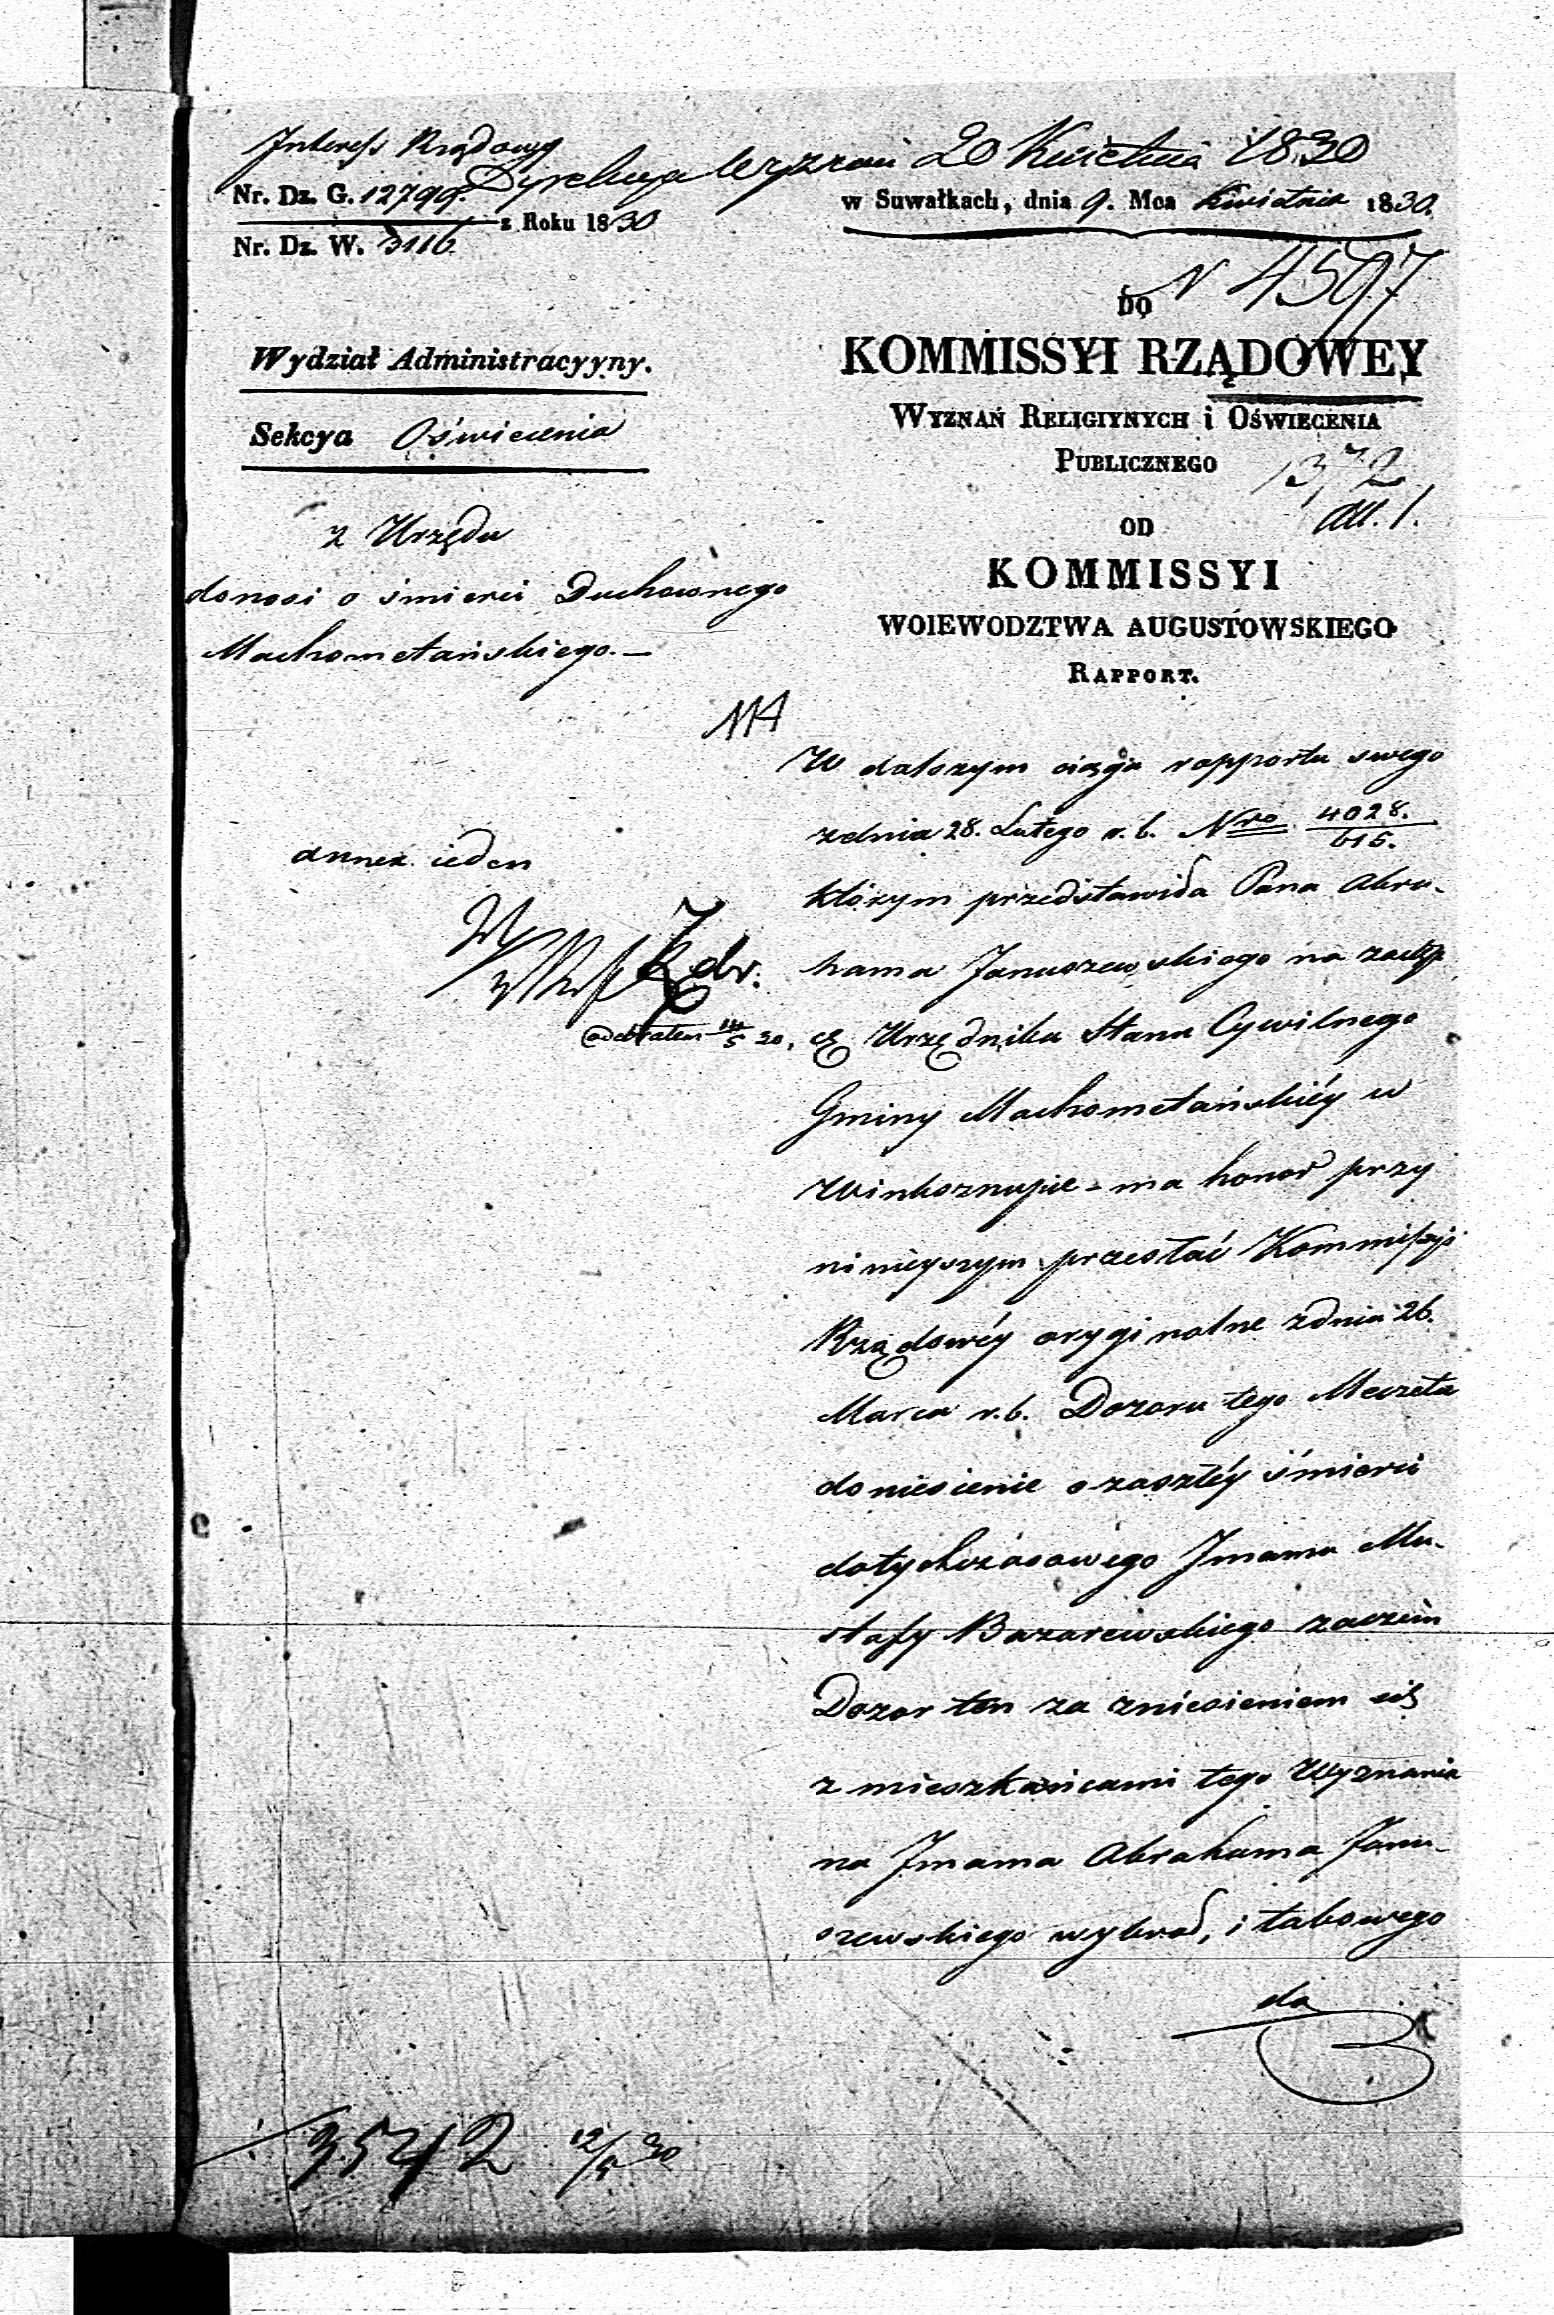 Interess Rządowy
Dyrekcya Wyznań 20 Kwietnia 1830
Nr. Dz. G. 12799.
z Roku 1830
Nr. Dz. W. 3116
w Suwałkach, dnia 9. Mca Kwietnia 1830.
N 4597
DO
KOMMISSYI RZĄDOWEY
WYZNAŃ RELIGIYNYCH i OŚWIECENIA
PUBLICZNEGO
1372
all. 1.
OD
KOMMISSYI
WOIEWODZTWA AUGUSTOWSKIEGO
RAPPORT.
Wydział Administracyyny.
Sekcya Oświecenia
z Urzędu
donosi o śmierci Duchownego
Machometańskiego. —
annex ieden
odebrałem
W dalszym ciągu rapportu swego
z dnia 28. Lutego r. b. Nro 4028./615.
którym przedstawiła Pana Abra-
hama Januszewskiego na zastęp
cę Urzędnika Stanu Cywilnego
Gminy Machometańskiéy w
Winksznupie - ma honor przy
ninieyszym przesłać Kommissyi
Rządowéy oryginalne z dnia 26.
Marca r. b. Dozoru tego Meczetu
doniesienie o zaszłéy śmierci
dotychczasowego Imama Mu-
stafy Bazarewskiego zaczem
Dozor ten za zniesieniem się
z mieszkańcami tego Wyznania
na Imama Abrahama Janu-
szewskiego wybrał, i takowego
do
3542 12/5 30